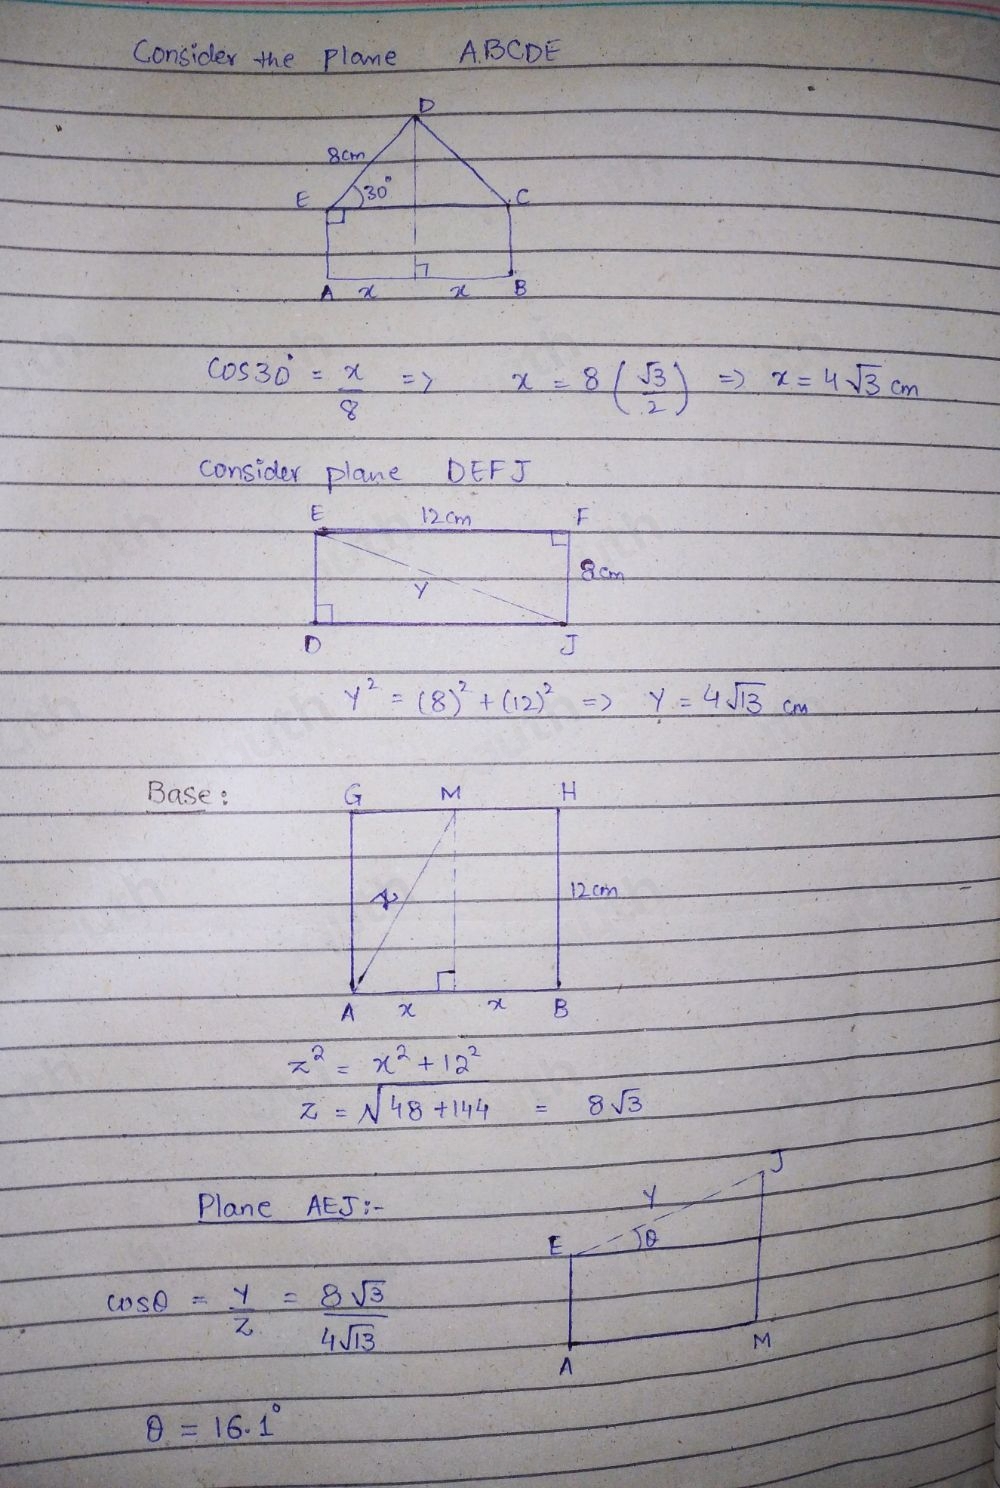 Consider the plane ABCDE
D
8cm
E 30° C
A x x B
cos30° = x/8 => x = 8(√3/2) => x = 4√3 cm
Consider plane DEFJ
E 12cm F
8cm
Y
D J
Y² = (8)² + (12)² => Y = 4√13 cm
Base:
G M H
12cm
A x x B
z² = x² + 12²
z = √48+144 = 8√3
J
Plane AEJ:- Y
E θ
cosθ = Y/Z = 8√3/4√13
A M
θ = 16.1°